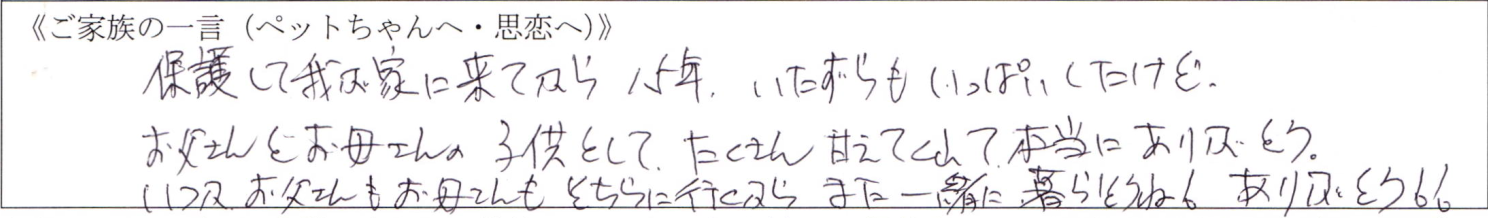 《ご家族の一言（ペットちゃんへ・思恋へ）》
保護して我が家に来てから15年、いたずらもいっぱいしたけど、
お父さんとお母さんの子供として、たくさん甘えてくれて、本当にありがとう。
いつか、お父さんもお母さんもそちらに行くから また一緒に暮らそうね。ありがとう。